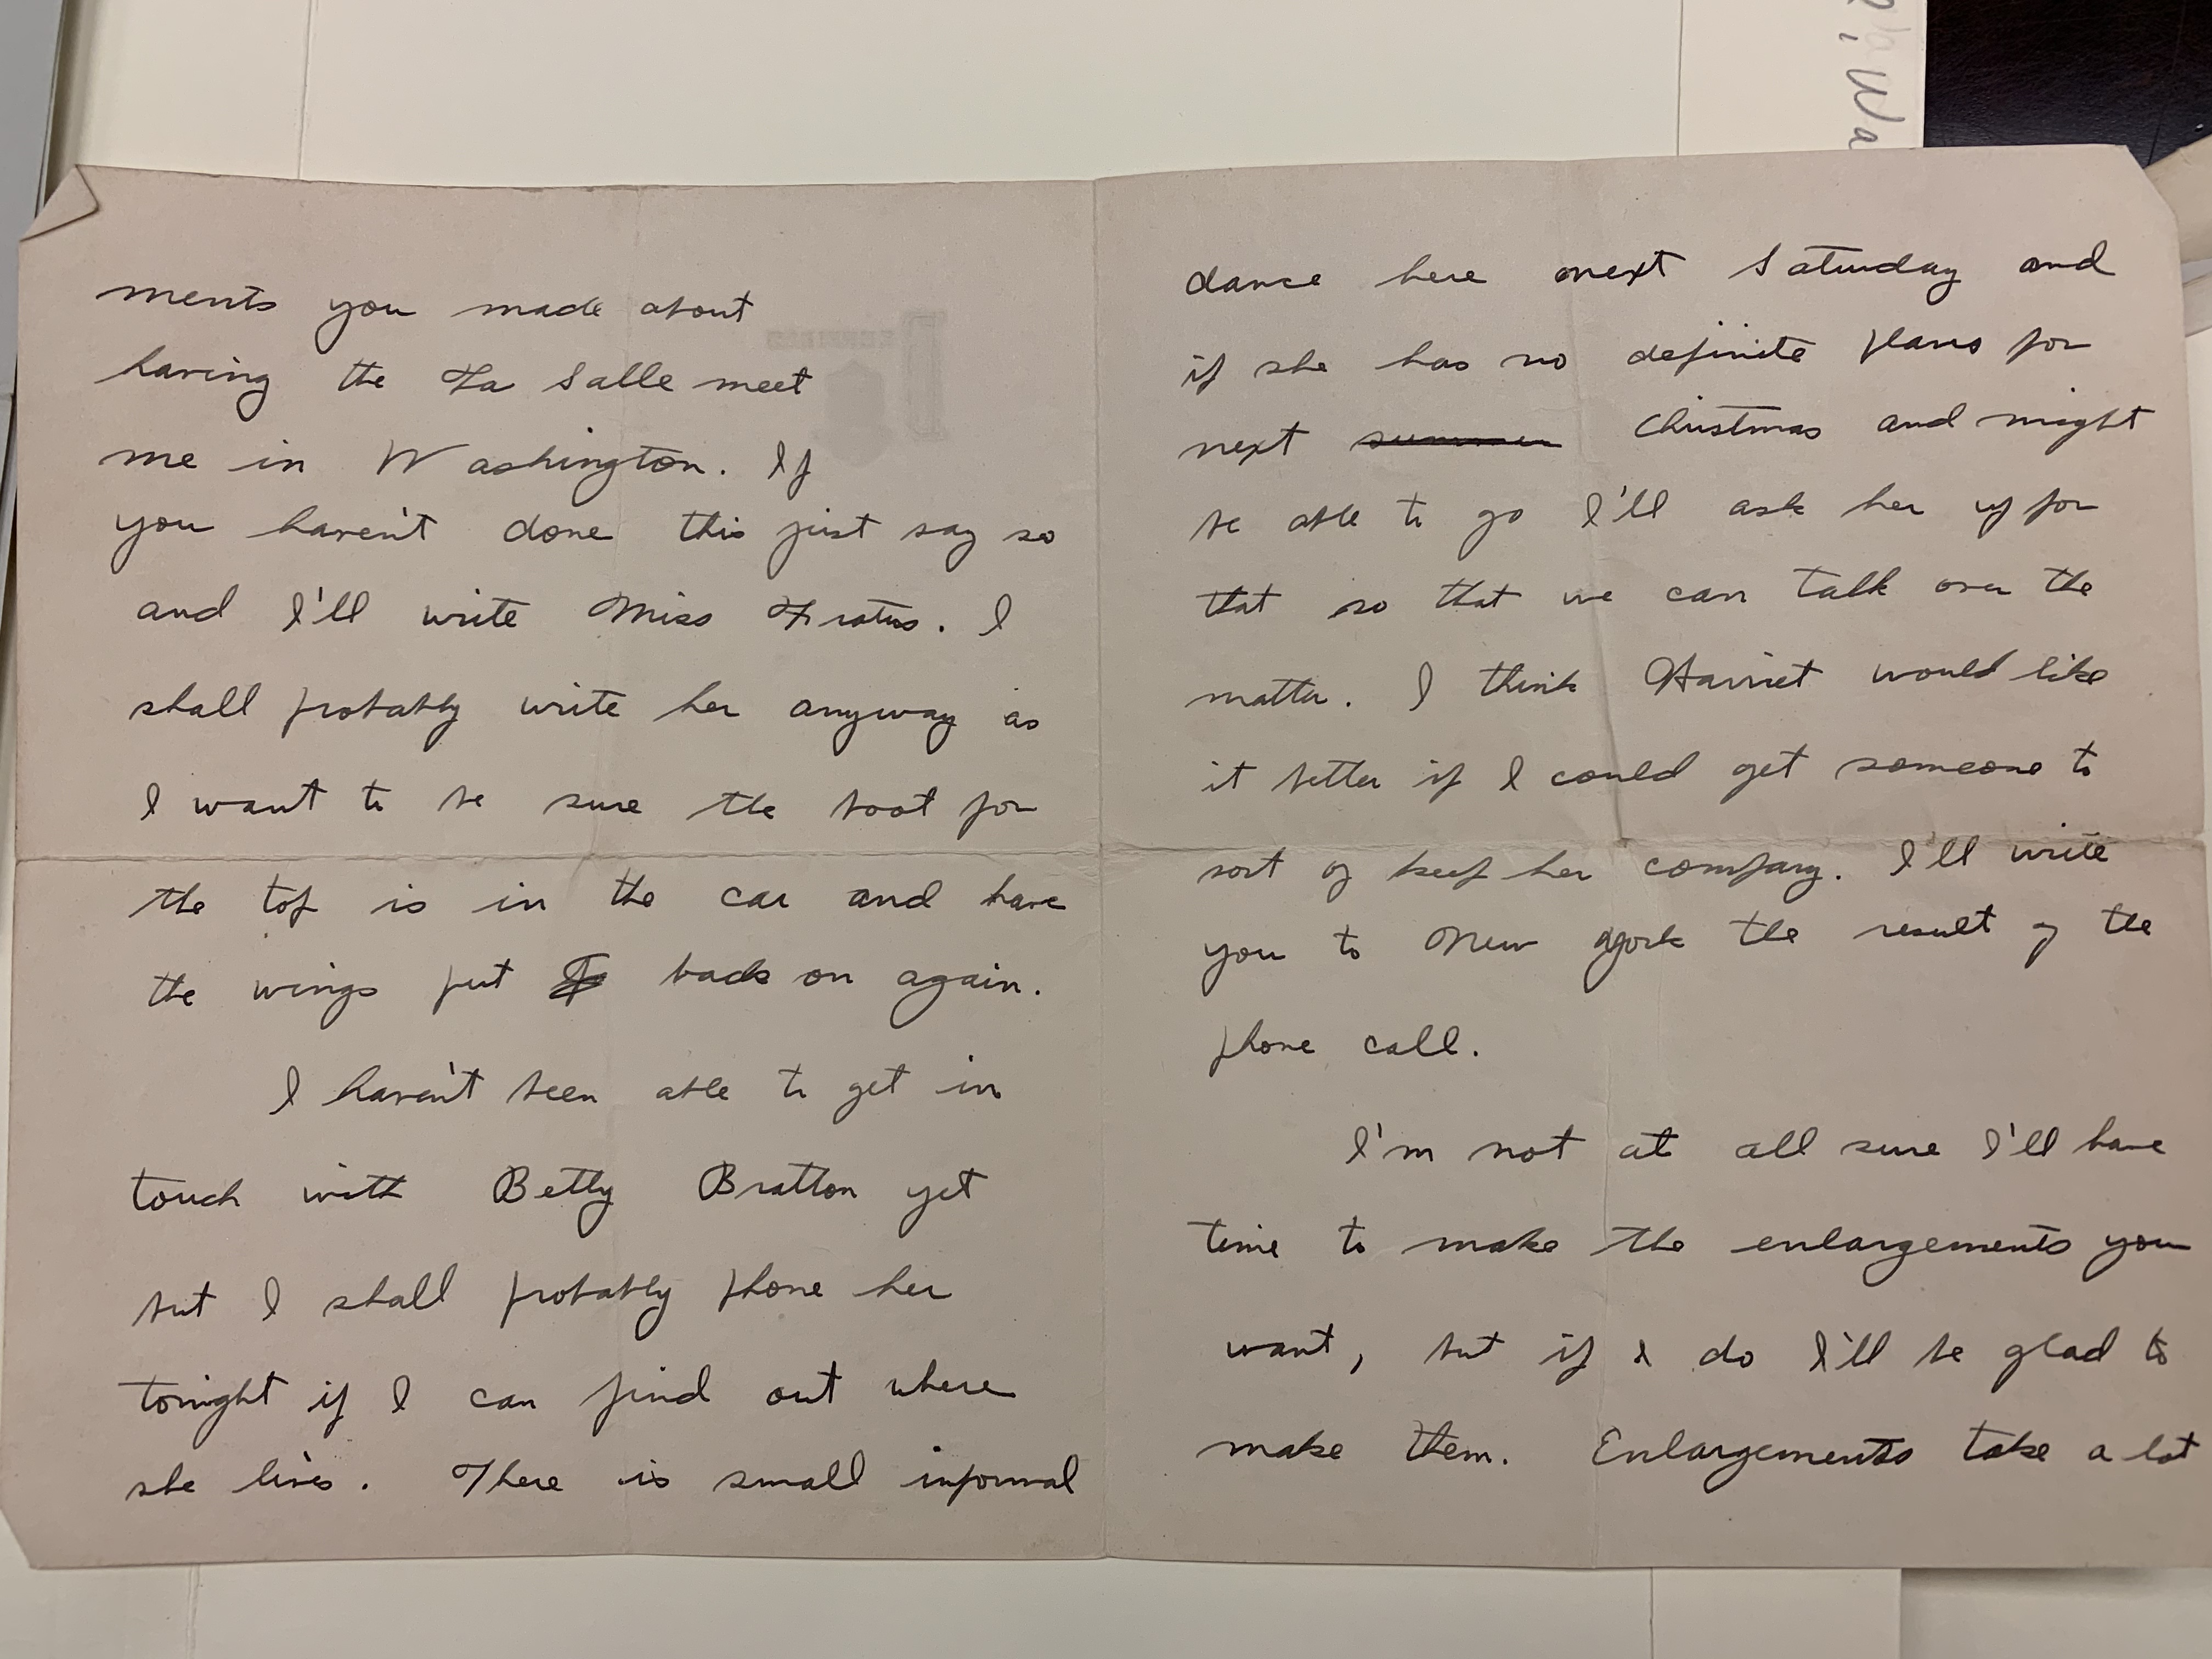 ments you made about
having the La Salle meet
me in Washington. If
you haven't done this just say so
and I'll write Miss I
shall probably write her anyway as
I want to be sure the boot for
the top is in the car and have
the wings put back on again.
I haven't been able to get in
touch with Betty Bratton yet
but I shall probably phone her
tonight if I can find out where
she lives. There is small informal
dance here next Saturday and
if she has no definite plans for
next Christmas and might
be able to go I'll ask her up for
that so that we can talk over the
matter. I think Harriet would like
it better if I could get someone to
sort of keep her company. I'll write
you to New York the result of the
phone call.
I'm not at all sure I'll have
time to make the enlargements you
want, but if I do I'll be glad to
make them. Enlargements take a lot